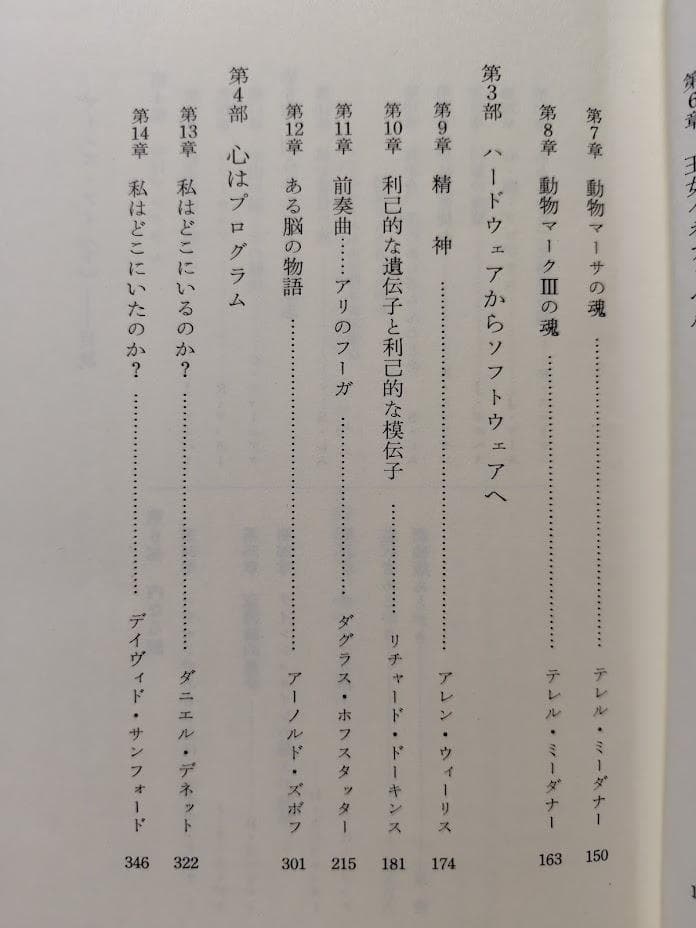 第6章
第7章 動物マーサの魂………………テレル・ミーダナー 150
第8章 動物マークⅢの魂………………テレル・ミーダナー 163
第3部 ハードウェアからソフトウェアへ
第9章 精 神………………アレン・ウィーリス 174
第10章 利己的な遺伝子と利己的な模伝子…………リチャード・ドーキンス 181
第11章 前奏曲……アリのフーガ………………ダグラス・ホフスタッター 215
第12章 ある脳の物語………………アーノルド・ズボフ 301
第4部 心はプログラム
第13章 私はどこにいるのか?………………ダニエル・デネット 322
第14章 私はどこにいたのか?………………デイヴィド・サンフォード 346